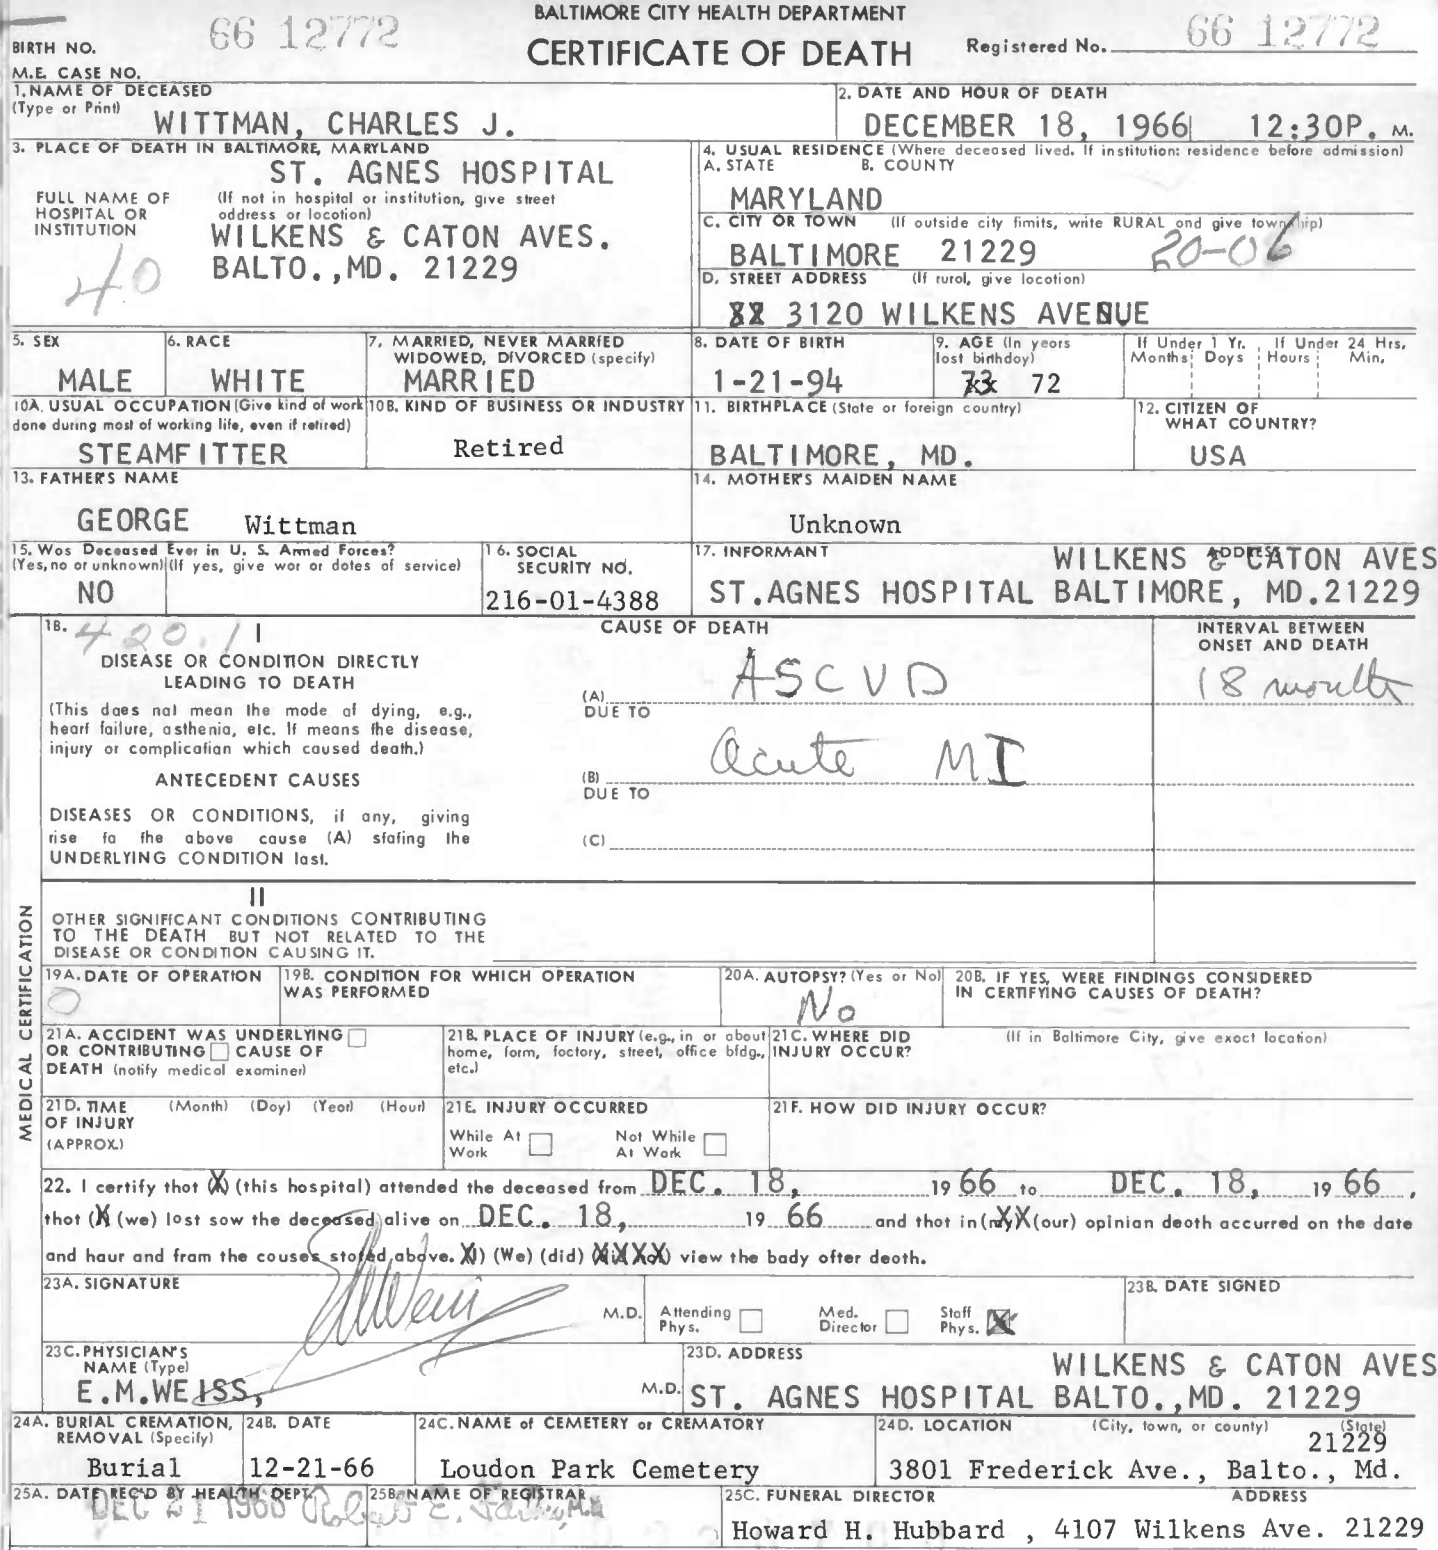 BALTIMORE CITY HEALTH DEPARTMENT
BIRTH NO. 66 12772 CERTIFICATE OF DEATH Registered No. 66 12772
M.E. CASE NO.
1. NAME OF DECEASED
(Type or Print) WITTMAN, CHARLES J.
2. DATE AND HOUR OF DEATH
DECEMBER 18, 1966 12:30P. M.
3. PLACE OF DEATH IN BALTIMORE, MARYLAND
ST. AGNES HOSPITAL
FULL NAME OF HOSPITAL OR INSTITUTION
(If not in hospital or institution, give street address or location)
WILKENS & CATON AVES.
BALTO.,MD. 21229
40
4. USUAL RESIDENCE (Where deceased lived. If institution: residence before admission)
A. STATE B. COUNTY
MARYLAND
C. CITY OR TOWN (If outside city limits, write RURAL and give township)
BALTIMORE 21229 20-06
D. STREET ADDRESS (If rural, give location)
3120 WILKENS AVENUE
5. SEX
MALE
6. RACE
WHITE
7. MARRIED, NEVER MARRIED
WIDOWED, DIVORCED (specify)
MARRIED
8. DATE OF BIRTH
1-21-94
9. AGE (In years
last birthday)
73 72
If Under 1 Yr. If Under 24 Hrs.
Months Days Hours Min.
10A. USUAL OCCUPATION (Give kind of work
done during most of working life, even if retired)
STEAMFITTER
10B. KIND OF BUSINESS OR INDUSTRY
Retired
11. BIRTHPLACE (State or foreign country)
BALTIMORE, MD.
12. CITIZEN OF
WHAT COUNTRY?
USA
13. FATHER'S NAME
GEORGE Wittman
14. MOTHER'S MAIDEN NAME
Unknown
15. Was Deceased Ever in U. S. Armed Forces?
(Yes, no or unknown) (If yes, give war or dates of service)
NO
16. SOCIAL
SECURITY NO.
216-01-4388
17. INFORMANT ADDRESS
WILKENS & CATON AVES
ST.AGNES HOSPITAL BALTIMORE, MD.21229
MEDICAL CERTIFICATION
18. 420.1 I
CAUSE OF DEATH
INTERVAL BETWEEN
ONSET AND DEATH
DISEASE OR CONDITION DIRECTLY
LEADING TO DEATH
(This does not mean the mode of dying, e.g.,
heart failure, asthenia, etc. It means the disease,
injury or complication which caused death.)
(A) ASCVD 18 months
DUE TO
ANTECEDENT CAUSES
(B) acute MI
DUE TO
DISEASES OR CONDITIONS, if any, giving
rise to the above cause (A) stating the
UNDERLYING CONDITION last.
(C)
II
OTHER SIGNIFICANT CONDITIONS CONTRIBUTING
TO THE DEATH BUT NOT RELATED TO THE
DISEASE OR CONDITION CAUSING IT.
19A. DATE OF OPERATION
0
19B. CONDITION FOR WHICH OPERATION
WAS PERFORMED
20A. AUTOPSY? (Yes or No)
No
20B. IF YES, WERE FINDINGS CONSIDERED
IN CERTIFYING CAUSES OF DEATH?
21A. ACCIDENT WAS UNDERLYING
OR CONTRIBUTING CAUSE OF
DEATH (notify medical examiner)
21B. PLACE OF INJURY (e.g., in or about
home, farm, factory, street, office bldg.,
etc.)
21C. WHERE DID
INJURY OCCUR?
(If in Baltimore City, give exact location)
21D. TIME (Month) (Day) (Year) (Hour)
OF INJURY
(APPROX.)
21E. INJURY OCCURRED
While At Work Not While At Work
21F. HOW DID INJURY OCCUR?
22. I certify that (X) (this hospital) attended the deceased from DEC. 18, 1966 to DEC. 18, 1966,
that (X (we) last saw the deceased alive on DEC. 18, 1966 and that in (my) (our) opinion death occurred on the date
and hour and from the causes stated above. (I) (We) (did) (did not) view the body after death.
23A. SIGNATURE
EMWeiss M.D.
Attending Phys. Med. Director Staff Phys. X
23B. DATE SIGNED
23C. PHYSICIAN'S
NAME (Type)
E.M.WEISS, M.D.
23D. ADDRESS
WILKENS & CATON AVES
ST. AGNES HOSPITAL BALTO.,MD. 21229
24A. BURIAL CREMATION,
REMOVAL (Specify)
Burial
24B. DATE
12-21-66
24C. NAME of CEMETERY or CREMATORY
Loudon Park Cemetery
24D. LOCATION (City, town, or county) (State)
21229
3801 Frederick Ave., Balto., Md.
25A. DATE REC'D BY HEALTH DEPT.
DEC 21 1966
25B. NAME OF REGISTRAR
Robert E. Farber, M.D.
25C. FUNERAL DIRECTOR ADDRESS
Howard H. Hubbard , 4107 Wilkens Ave. 21229